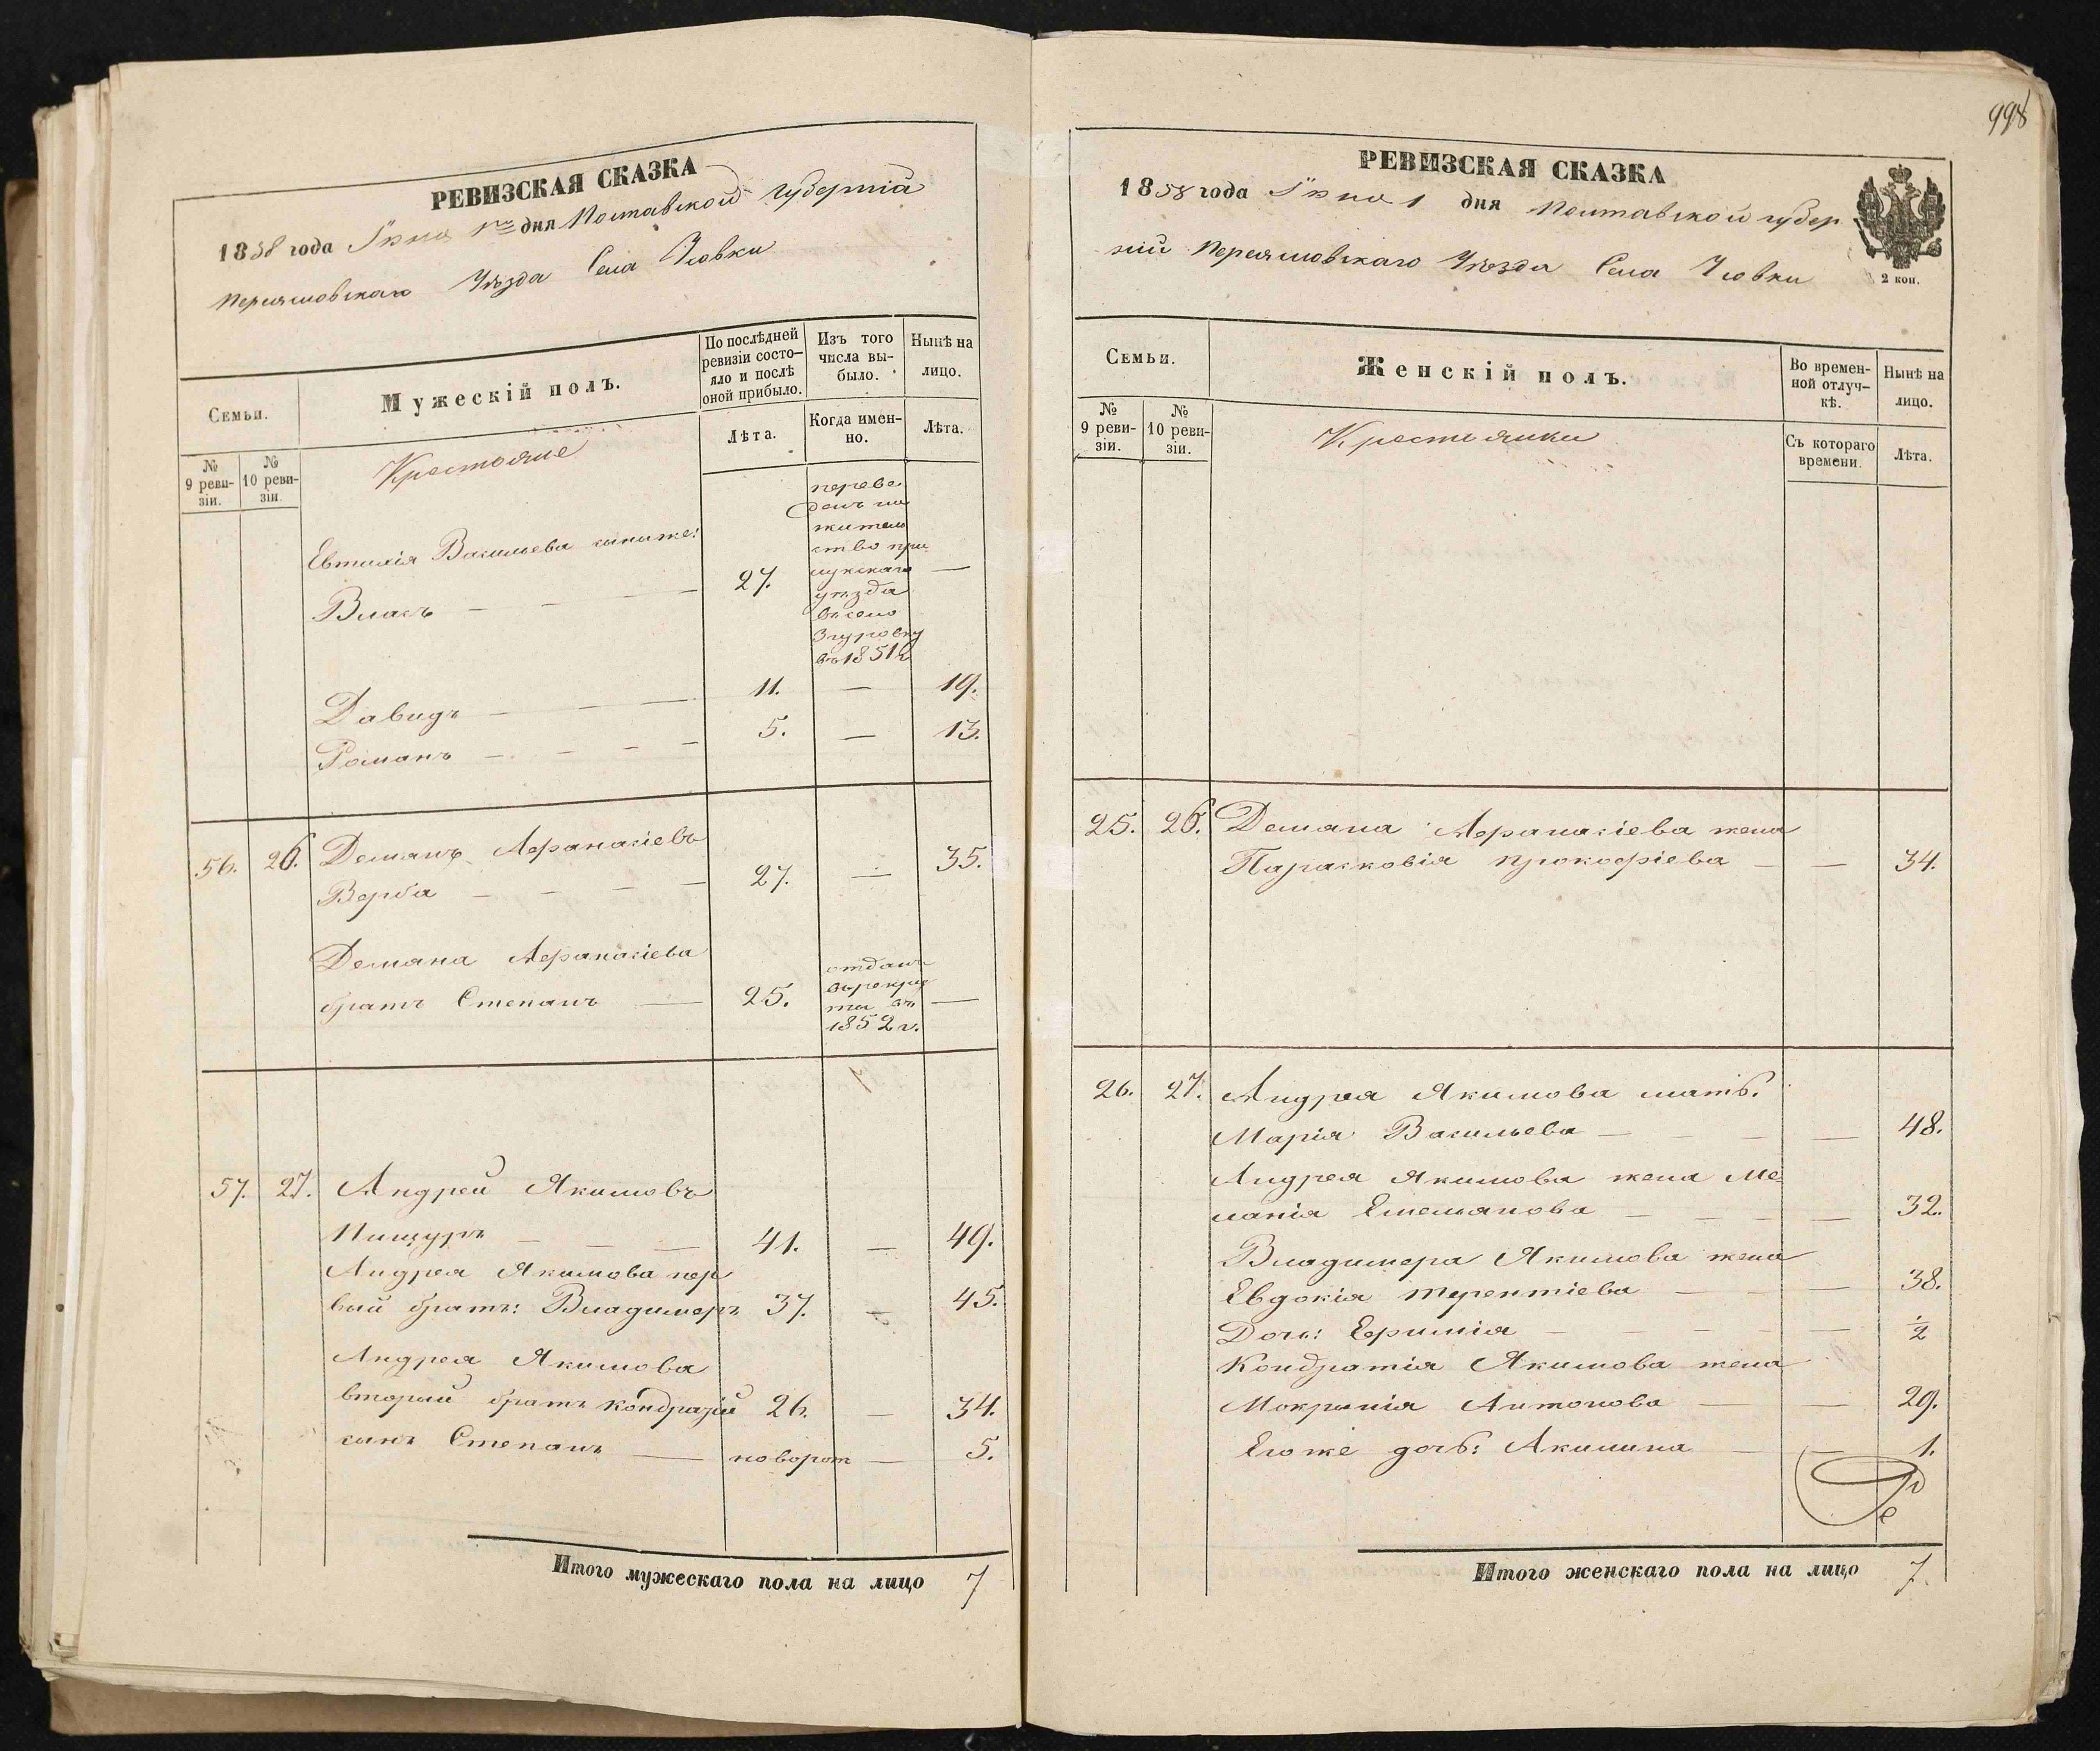 РЕВИЗСКАЯ СКАЗКА
1858 года Iюня 1го дня Полтавской губернiи
Переяславскаго Уѣзда Села Чевки
Семьи.
Мужескiй полъ.
По послѣдней ревизiи состо-
яло и послѣ оной прибыло.
Изъ того числа вы-
было.
Нынѣ на лицо.
№ 9 реви-
зiи.
№ 10 реви-
зiи.
Лѣта.
Когда имен-
но.
Лѣта.
Крестьяне
Евтихiя Васильева сыны же:
Власъ — — — — 27. —
переве
денъ на
житель
ство при
лукскаго
уѣзда
въ село
Згуровку
въ 1851 г
Давидъ — — — 11. — 19.
Романъ — — — — 5. — 13.
56. 26. Демянъ Афанасiевъ
Верба — — — — 27. — 35.
Демяна Афанасiева
братъ Степанъ — 25. —
отданъ
въ рекру
ты въ
1852 г.
57. 27. Андрей Якимовъ
Пищуръ — — — 41. — 49.
Андрея Якимова пер
вый братъ: Владимеръ 37. — 45.
Андрея Якимова
вторый братъ Кондратiй 26. — 34.
сынъ Степанъ — новорож — 5.
Итого мужескаго пола на лицо 7
998
РЕВИЗСКАЯ СКАЗКА
1858 года Iюня 1 дня Полтавской губер
нiи Переяславскаго Уѣзда Села Чевки
2 коп.
Семьи.
Женскiй полъ.
Во времен-
ной отлуч-
кѣ.
Нынѣ на
лицо.
№ 9 реви-
зiи.
№ 10 реви-
зiи.
Съ котораго
времени.
Лѣта.
Крестьянки
25. 26. Демяна Афанасiева жена
Парасковiя Прокофiева — — 34.
26. 27. Андрея Якимова мать.
Марiя Васильева — — — — 48.
Андрея Якимова жена Ме
ланiя Емельянова — — — — 32.
Владимера Якимова жена
Евдокiя Терентiева — — — 38.
Дочь: Ефимiя — — — — — 1/2
Кондратiя Якимова жена
Мокрынiя Антонова — — 29.
Его же дочь: Акилина — — 1.
Итого женскаго пола на лицо 7.